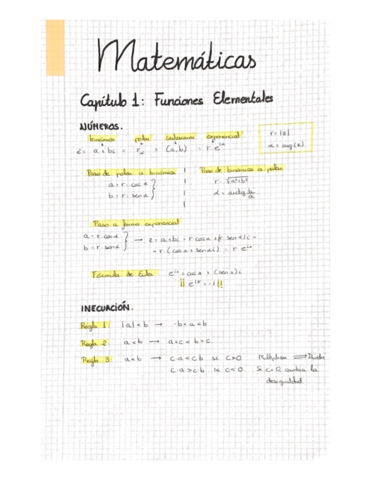 Matemáticas
Capítulo 1: Funciones Elementales
NÚMEROS.
binómica polar cartesiana exponencial
z = a + bi = r_α = (a,b) = r·e^{iα}
r = |z|
α = arg(z)
Paso de polar a binómica
Paso de binómica a polar
a = r · cos α
b = r · sen α
r = √(a²+b²)
α = arctg b/a
Paso a forma exponencial
a = r · cos α
b = r · sen α
→ z = a + bi = r cos α + (r · sen α) i =
= r · (cos α + sen α i) = r · e^{iα}
Fórmula de Euler e^{iα} = cos α + (sen α) i
¡¡ e^{iπ} = -1 !!
INECUACIÓN.
Regla 1 |a| < b → -b < a < b
Regla 2 a < b → a + c < b + c
Regla 3 a < b → c·a < c·b si c > 0 Multiplicar ⟹ Dividir
c·a > c·b si c < 0 Si c < 0 cambia la
desigualdad